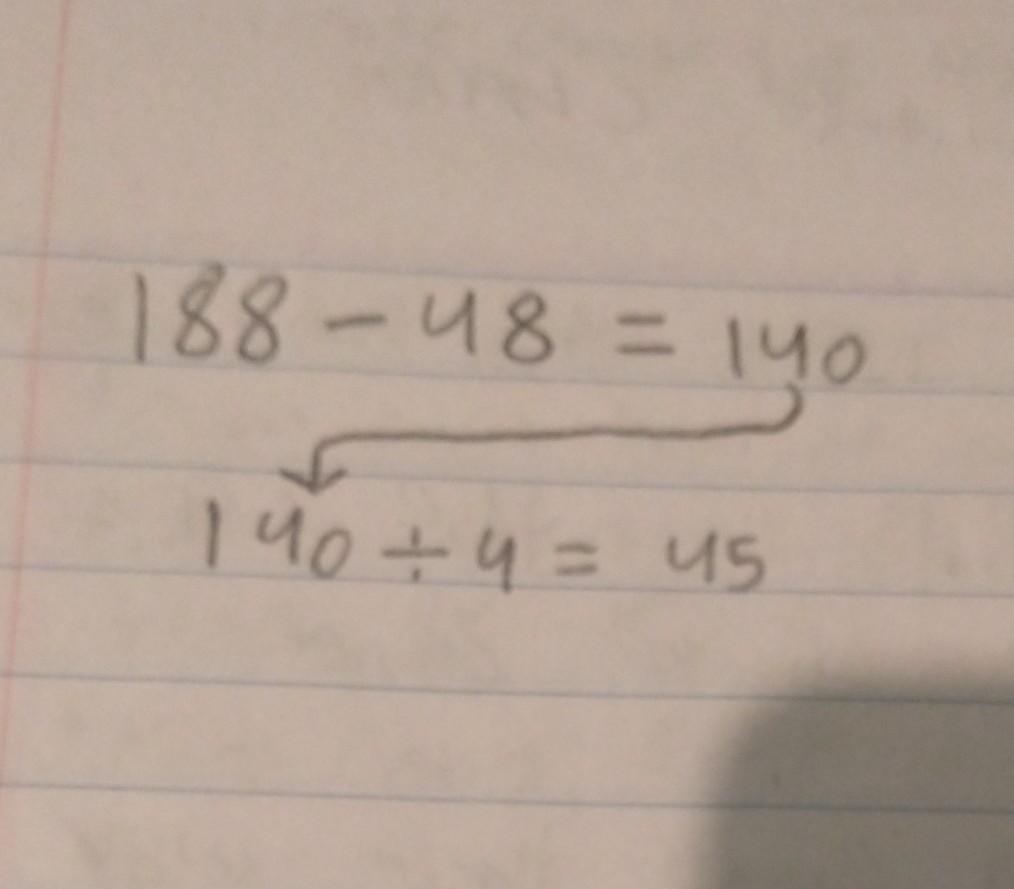 188 - 48 = 140
140 ÷ 4 = 45